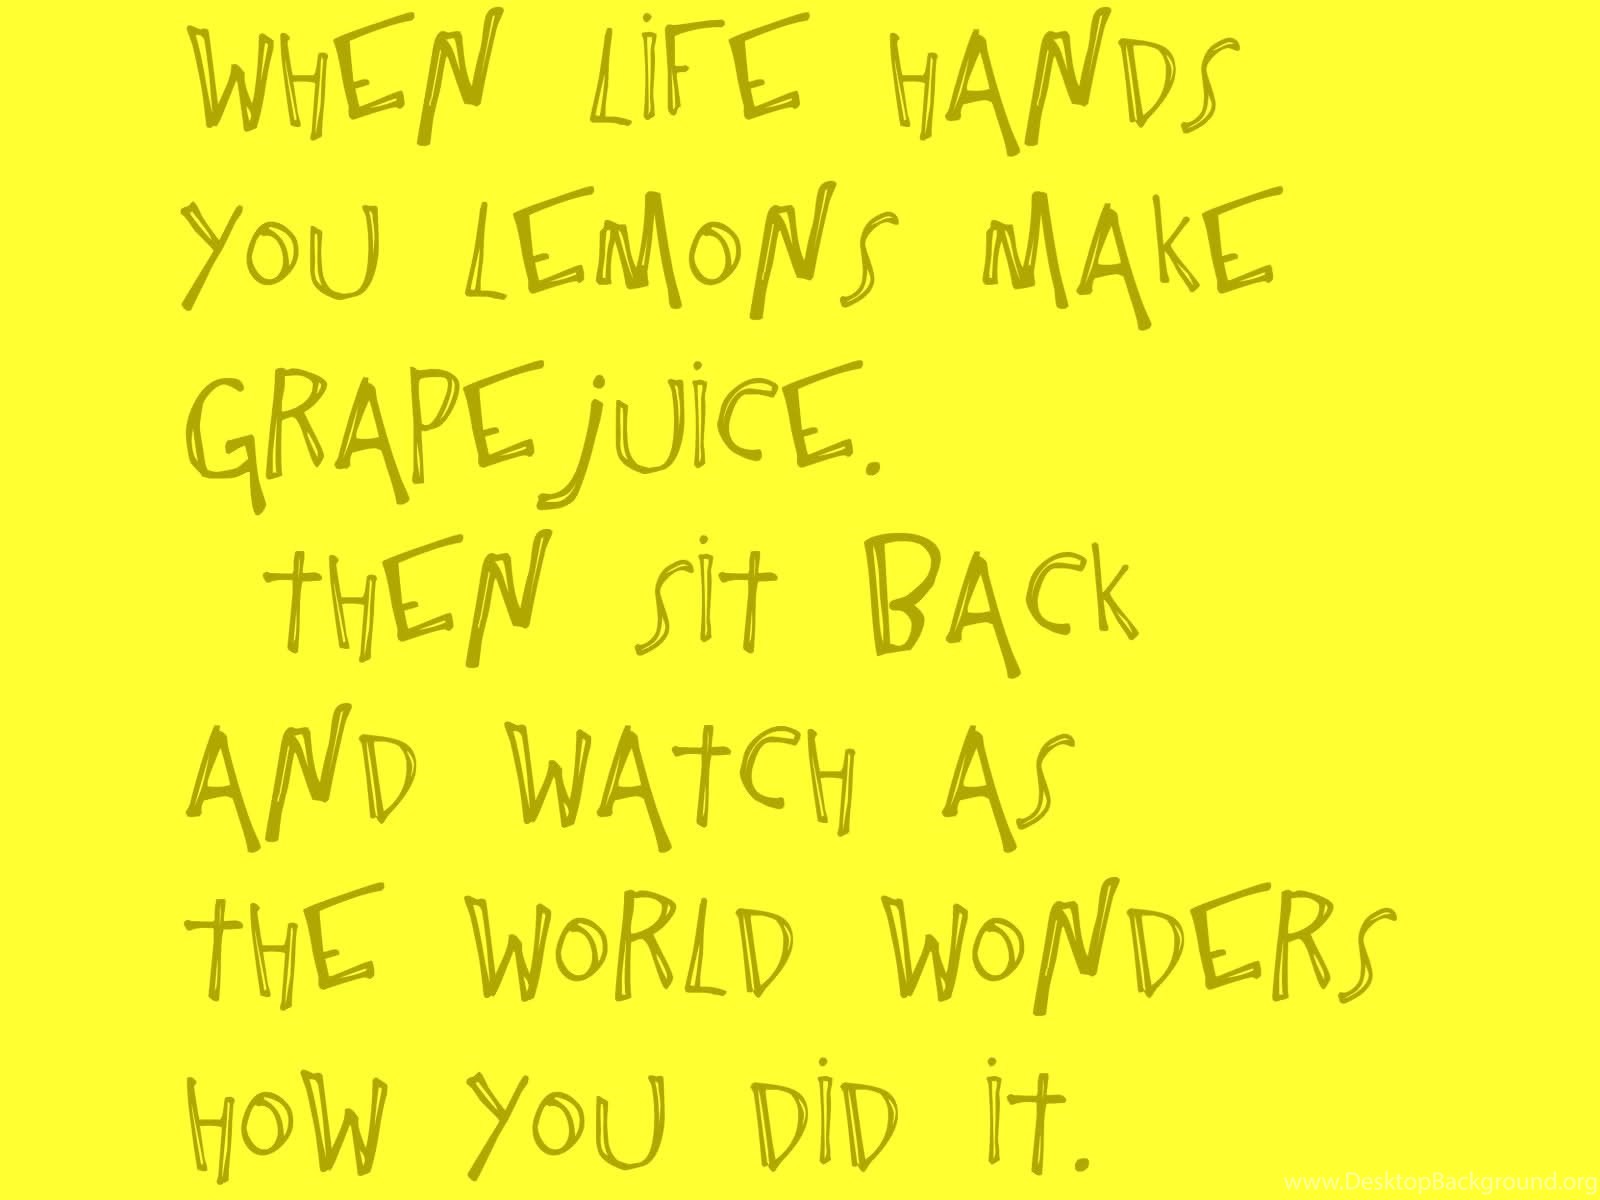 WHEN LiFE HANDS
YOU LEMONS MAKE
GRAPEjUiCE.
tHEN Sit BACK
AND WAtCH AS
tHE WORLD WONDERS
HOW YOU DiD it.
www.DesktopBackground.org